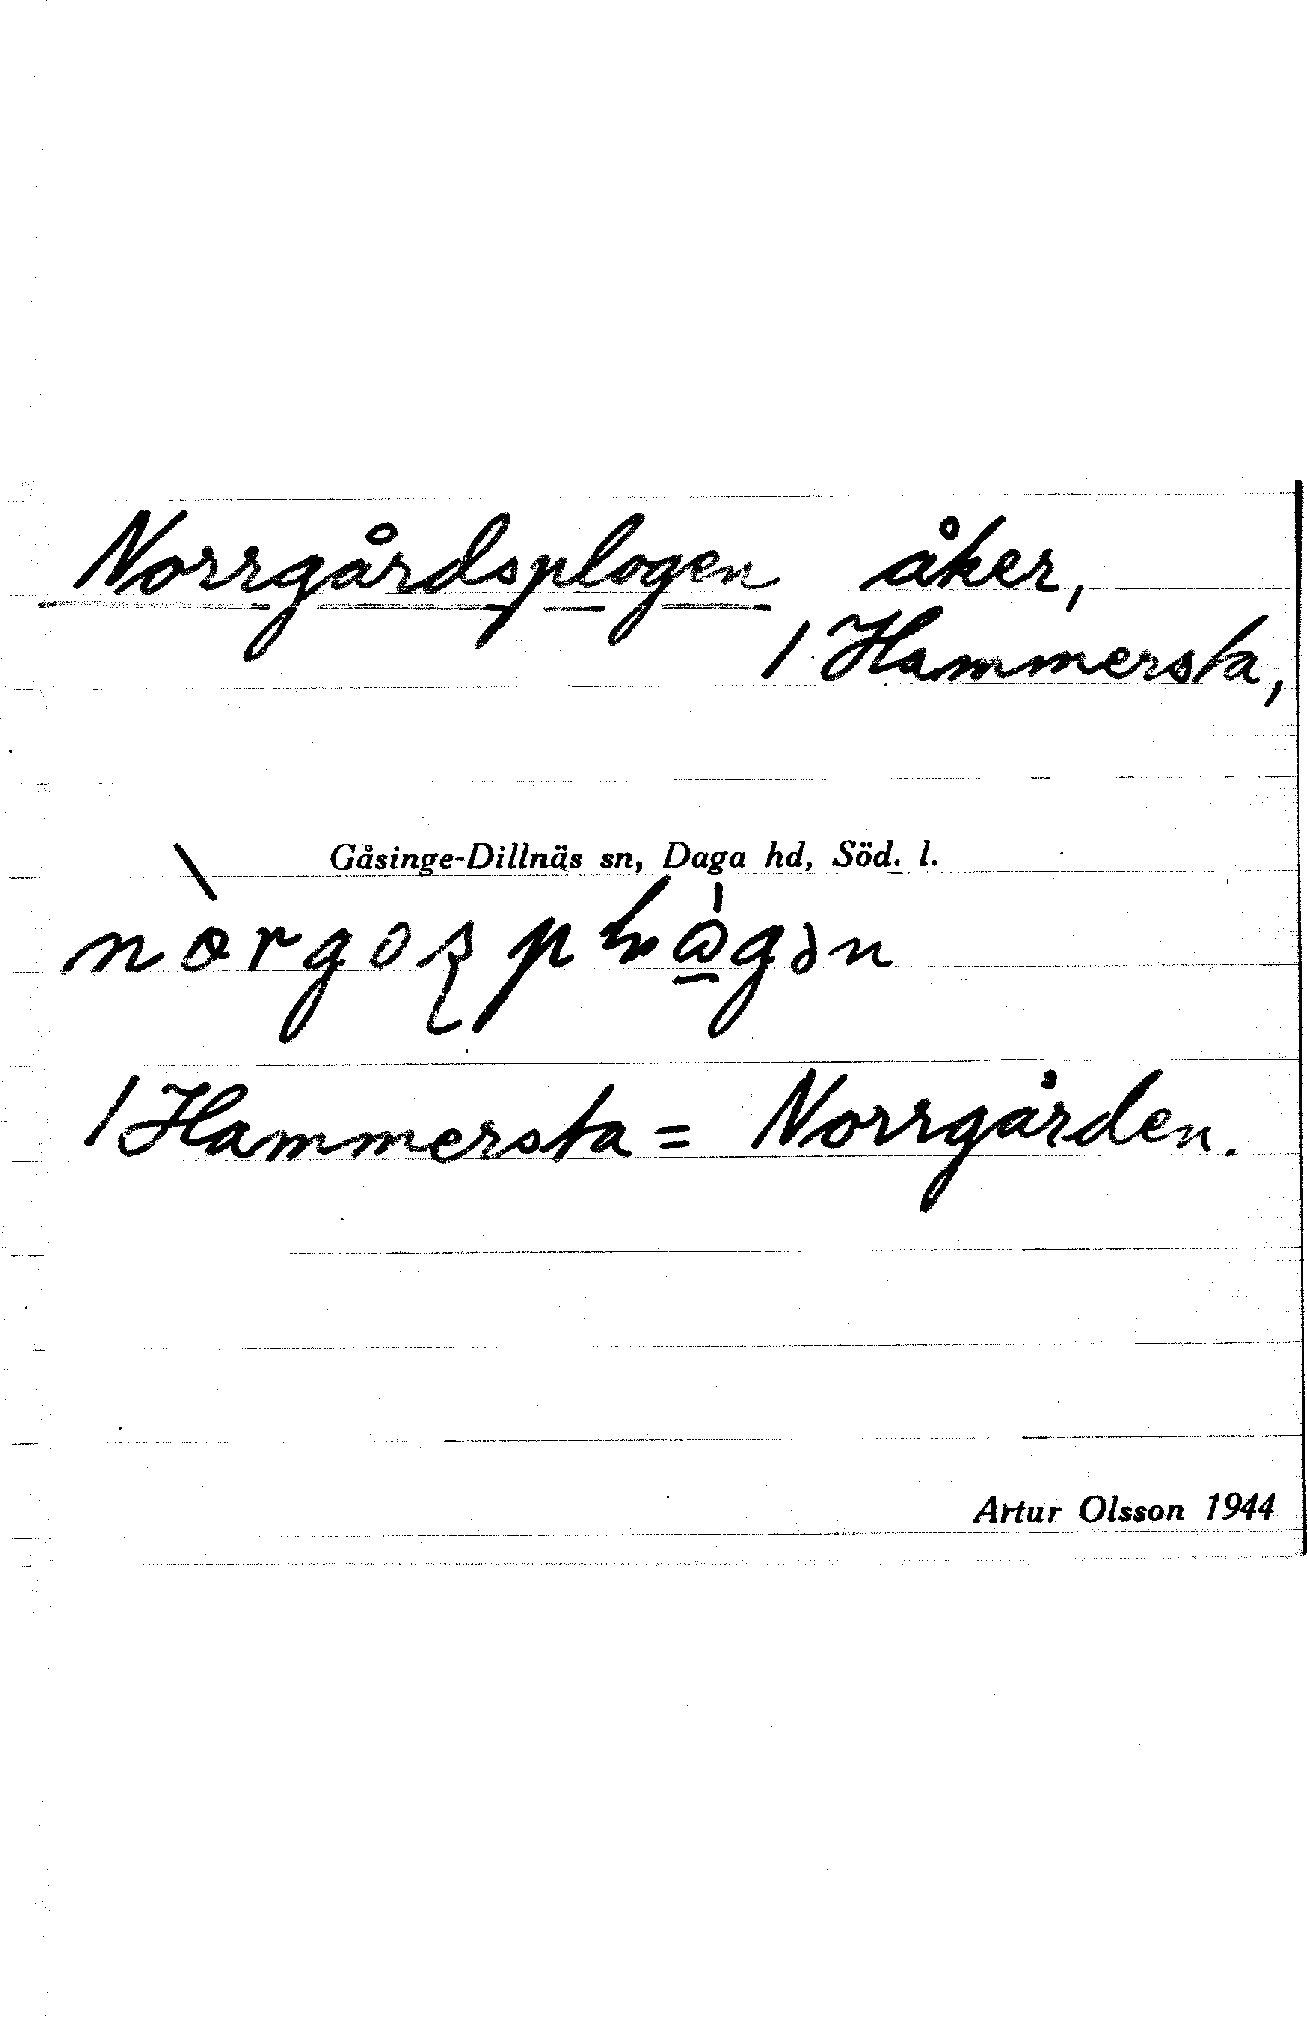 Norrgårdsplogen åker,
/ Hammersta,
Gåsinge-Dillnäs sn, Daga hd, Söd. l.
/ Hammersta = Norrgården.
Artur Olsson 1944